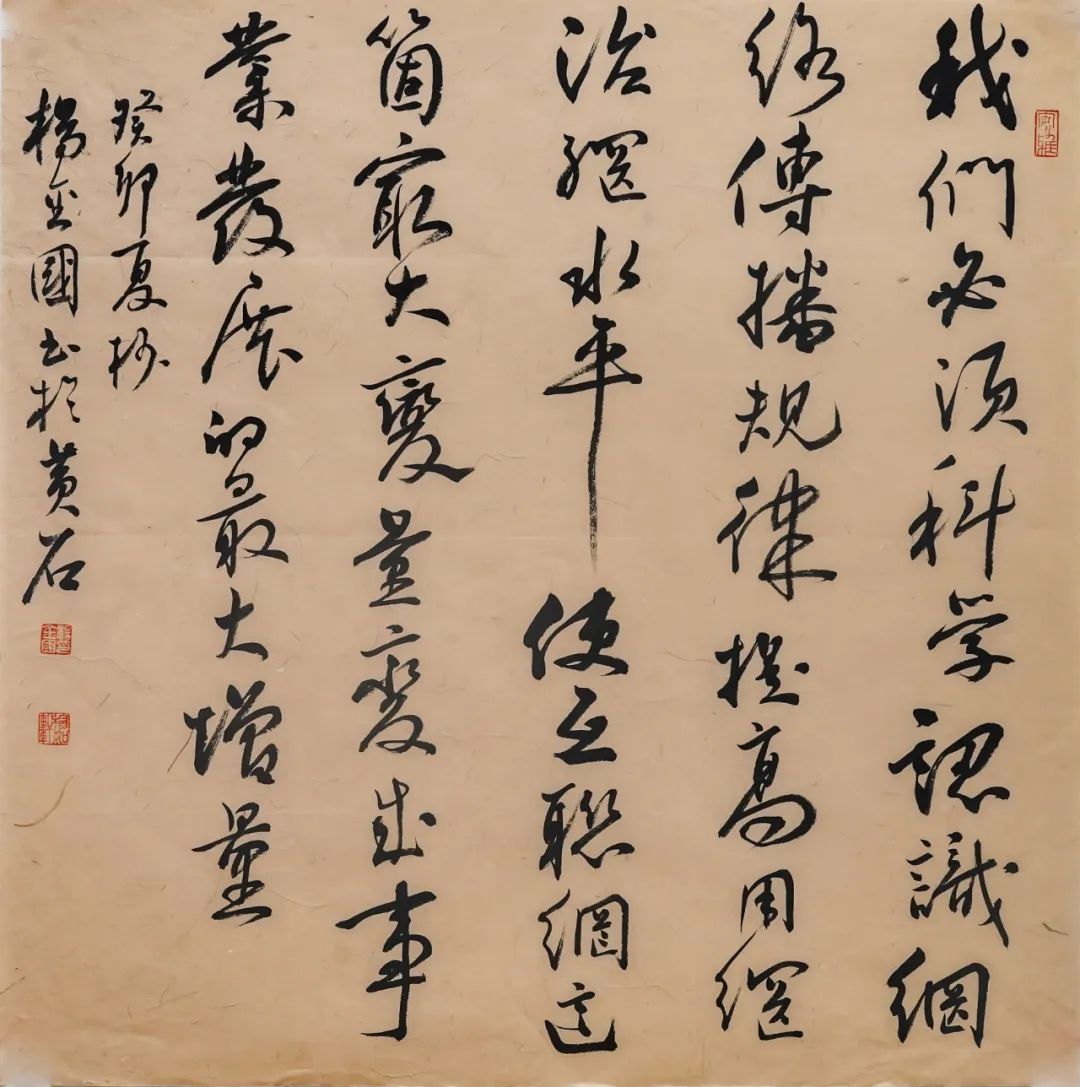 我們必須科学認識網
络傳播規律提高用網
治網水平使互聯網這
箇最大變量變成事
業發展的最大增量
癸卯夏抄
楊金國书於黄石